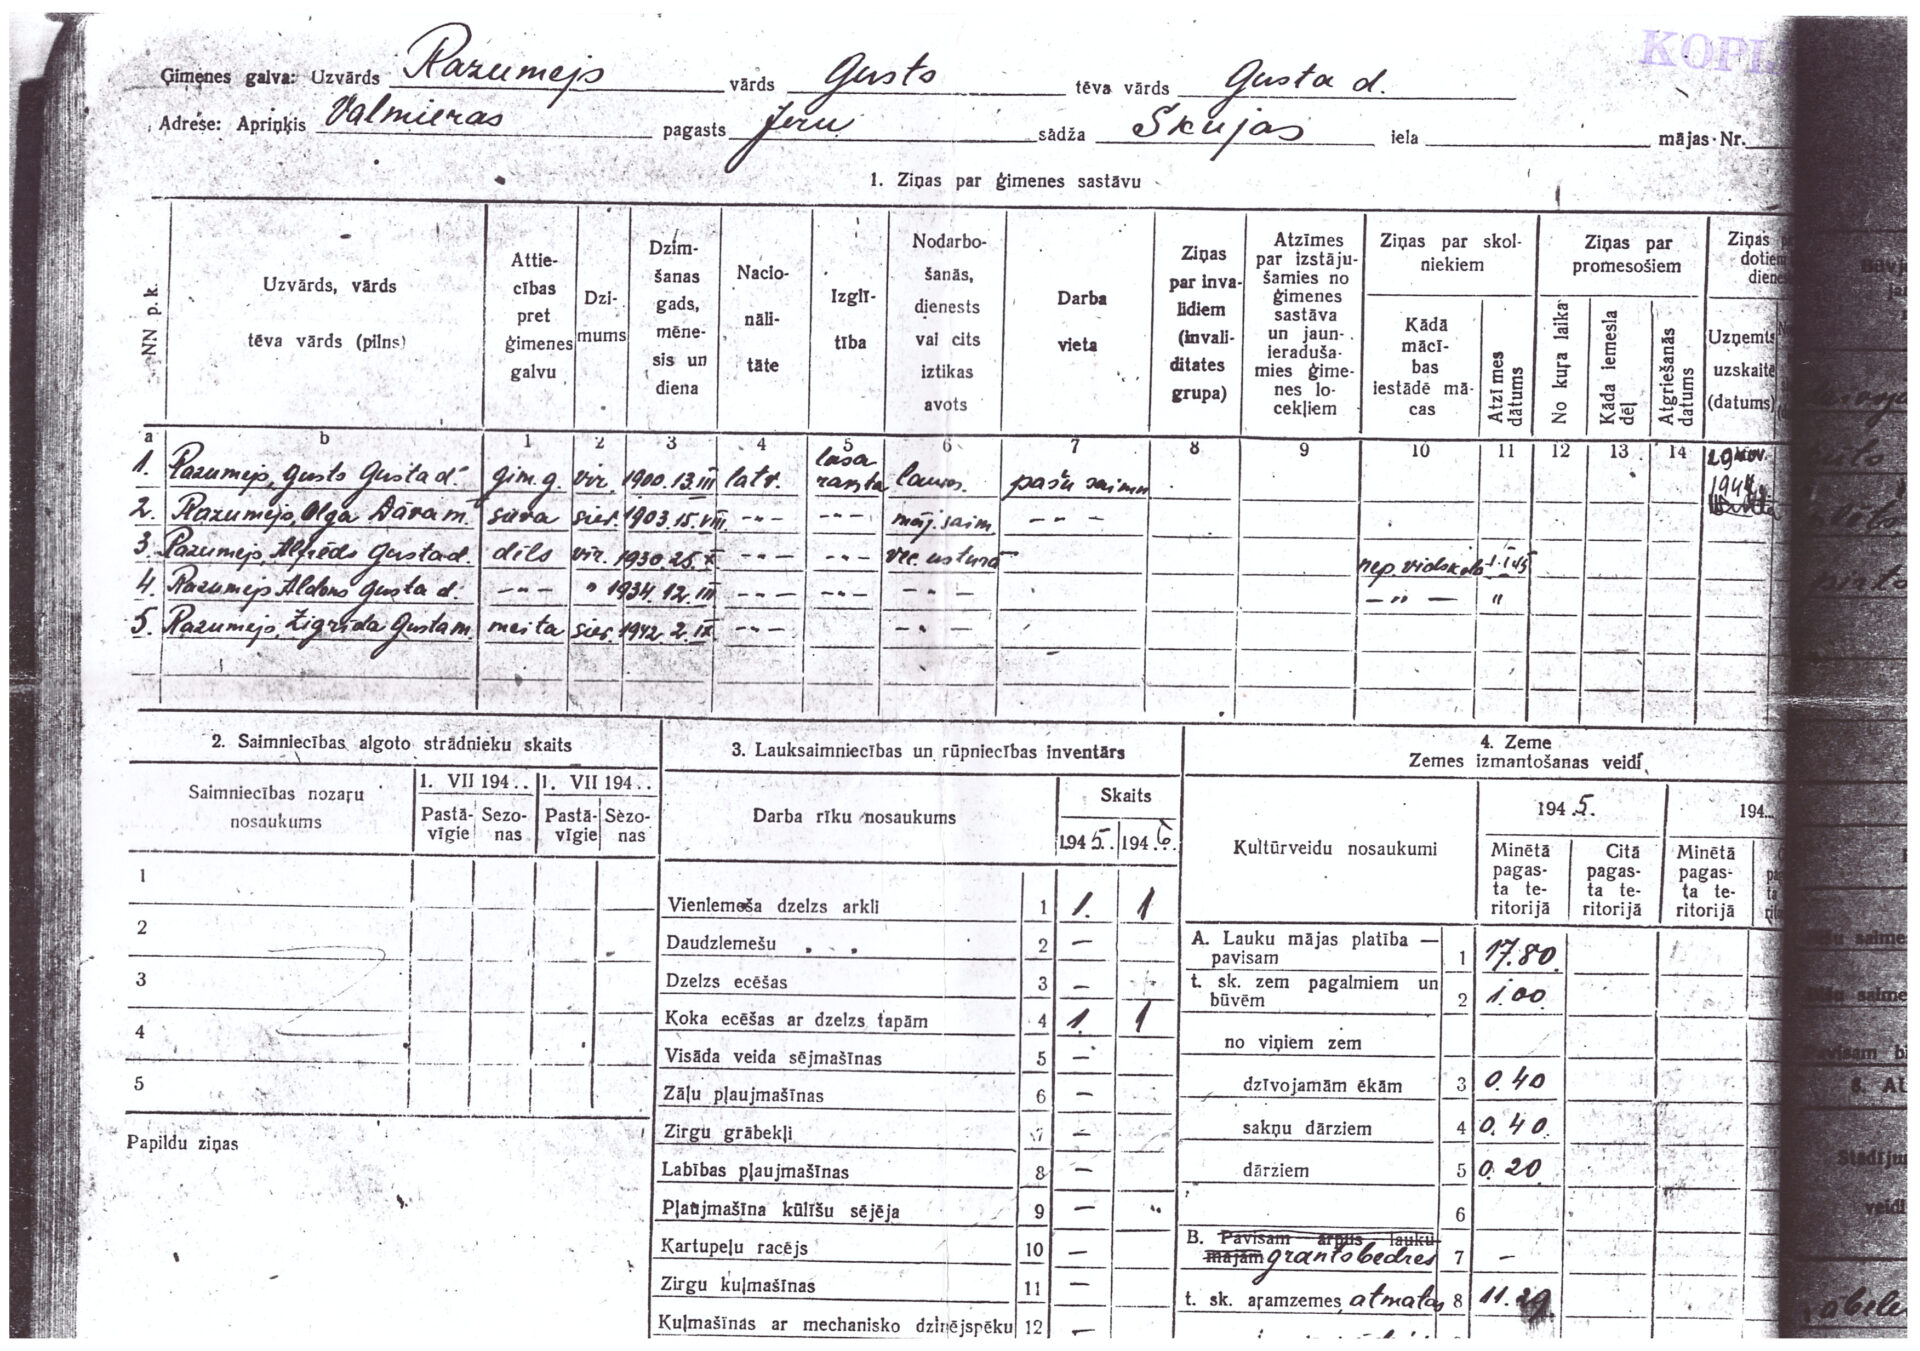 KOPI
Ģimenes galva: Uzvārds Razumejs vārds Gusts tēva vārds Gusta d.
Adrese: Apriņķis Valmieras pagasts Jeru sādža Skujas iela mājas Nr.
1. Ziņas par ģimenes sastāvu
NN p. k.
Uzvārds, vārds
tēva vārds (pilns)
Attie-
cības
pret
ģimenes
galvu
Dzi-
mums
Dzim-
šanas
gads,
mēne-
sis un
diena
Nacio-
nāli-
tāte
Izglī-
tība
Nodarbo-
šanās,
dienests
vai cits
iztikas
avots
Darba
vieta
Ziņas
par inva-
lidiem
(invali-
ditates
grupa)
Atzīmes
par izstāju-
šamies no
ģimenes
sastāva
un jaun-
ieraduša-
mies ģime-
nes lo-
cekļiem
Ziņas par skol-
niekiem
Kādā
mācī-
bas
iestādē mā-
cas
Atzīmes
dātums
Ziņas par
promesošiem
No kuŗa laika
Kāda iemesla
dēļ
Atgriešanās
datums
Ziņas
dotiem
dienes
Uzņemts
uzskaitē
(datums)
a b 1 2 3 4 5 6 7 8 9 10 11 12 13 14
1. Razumejs, Gusts Gusta d. ģim. g. vīr. 1900. 13. III latv. lasa raksta lauks. pašu saimn
2. Razumejs, Olga Dāva m. sieva siev. 1903. 15. VIII -"- -"- māj. saim. -"-
3. Razumejs, Alfrēds Gusta d. dēls vīr. 1930. 25. X -"- -"- vec. uzturā nep. vidskola 1. I 45
4. Razumejs Aldons Gusta d. -"- " 1934. 12. III -"- -"- -"- -"- "
5. Razumejs, Zigrīda Gusta m. meita siev. 1942. 2. IX -"- -"-
1944
2. Saimniecības algoto strādnieku skaits
Saimniecības nozaŗu
nosaukums
1. VII 194 . . 1. VII 194 . .
Pastā-
vīgie
Sezo-
nas
Pastā-
vīgie
Sezo-
nas
1
2
3
4
5
Papildu ziņas
3. Lauksaimniecības un rūpniecības inventārs
Darba rīku nosaukums
Skaits
1945. 1946.
Vienlemeša dzelzs arkli 1 1. 1
Daudzlemešu " " 2 —
Dzelzs ecēšas 3 —
Koka ecēšas ar dzelzs tapām 4 1. 1
Visāda veida sējmašīnas 5 —
Zāļu pļaujmašīnas 6 —
Zirgu grābekļi 7 —
Labības pļaujmašīnas 8 —
Pļaujmašīna kūlīšu sējēja 9 — "
Kartupeļu racējs 10 —
Zirgu kuļmašīnas 11 —
Kuļmašīnas ar mechanisko dzinējspēku 12 —
4. Zeme
Zemes izmantošanas veidi
Kultūrveidu nosaukumi
1945. 194...
Minētā
pagas-
ta te-
ritorijā
Citā
pagas-
ta te-
ritorijā
Minētā
pagas-
ta te-
ritorijā
A. Lauku mājas platība —
pavisam 1 17.80
t. sk. zem pagalmiem un
būvēm 2 1.00
no viņiem zem
dzīvojamām ēkām 3 0.40
sakņu dārziem 4 0.40
dārziem 5 0.20
6
B. Pavisam ārpus lauku
mājām grantsbedres 7 —
t. sk. aramzemes, atmatas 8 11.29